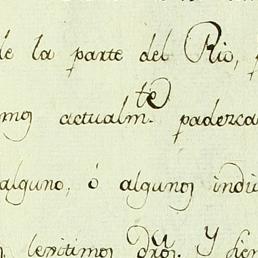 de la parte del Rio,
mos actualm.te padezca
alguno, ó algunos indi
lexitimos Dros. Y